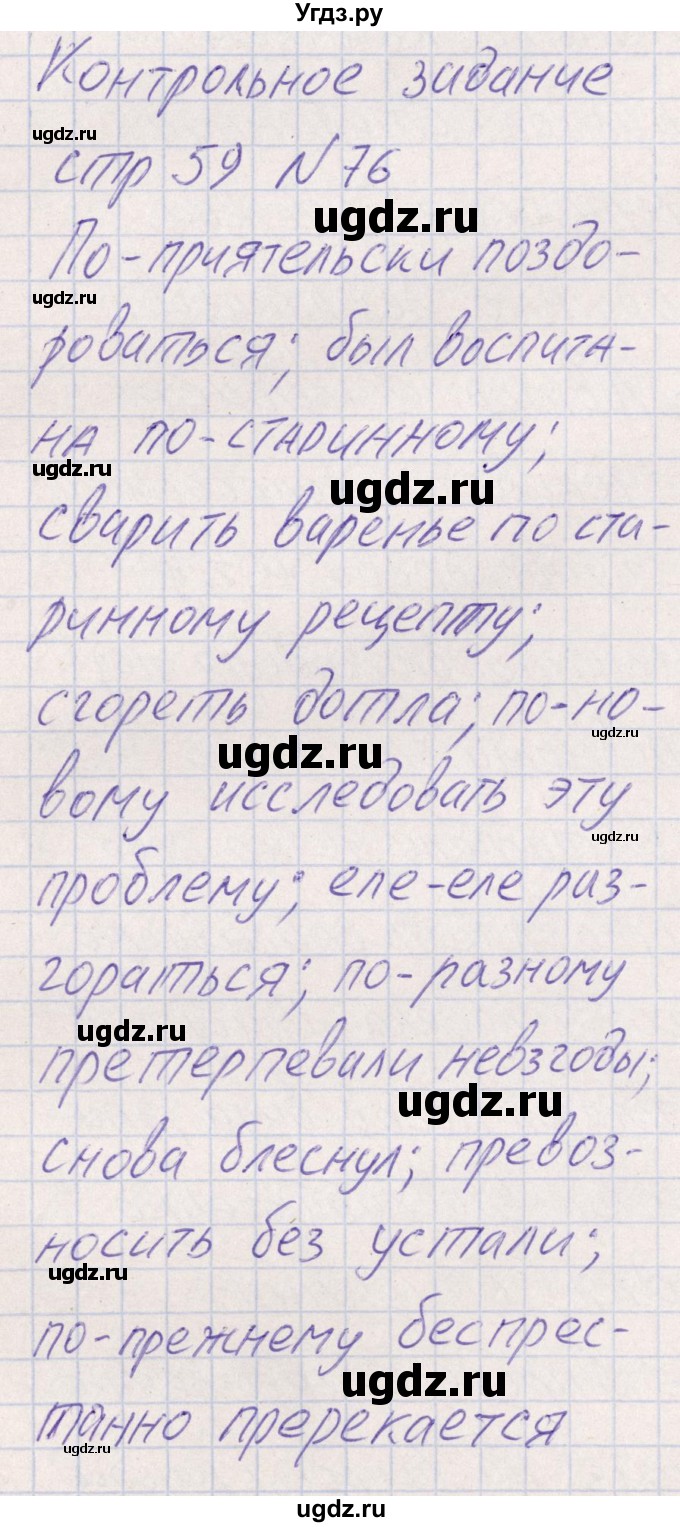 Угдз.ру
Контрольное задание
ugdz.ru
стр 59 №76
ugdz.ru
По-приятельски поздо-
ugdz.ru
роваться; был воспита-
на по-старинному;
ugdz.ru
ugdz.ru
сварить варенье по ста-
ринному рецепту;
сгореть дотла; по-но-
ugdz.ru
ugdz.ru
вому исследовать эту
ugdz.ru
проблему; еле-еле раз-
гораться; по-разному
ugdz.ru
претерпевали невзгоды;
ugdz.ru
снова блеснул; превоз-
носить без устали;
ugdz.ru
по-прежнему беспрес-
ugdz.ru
танно пререкается
ugdz.ru
ugdz.ru